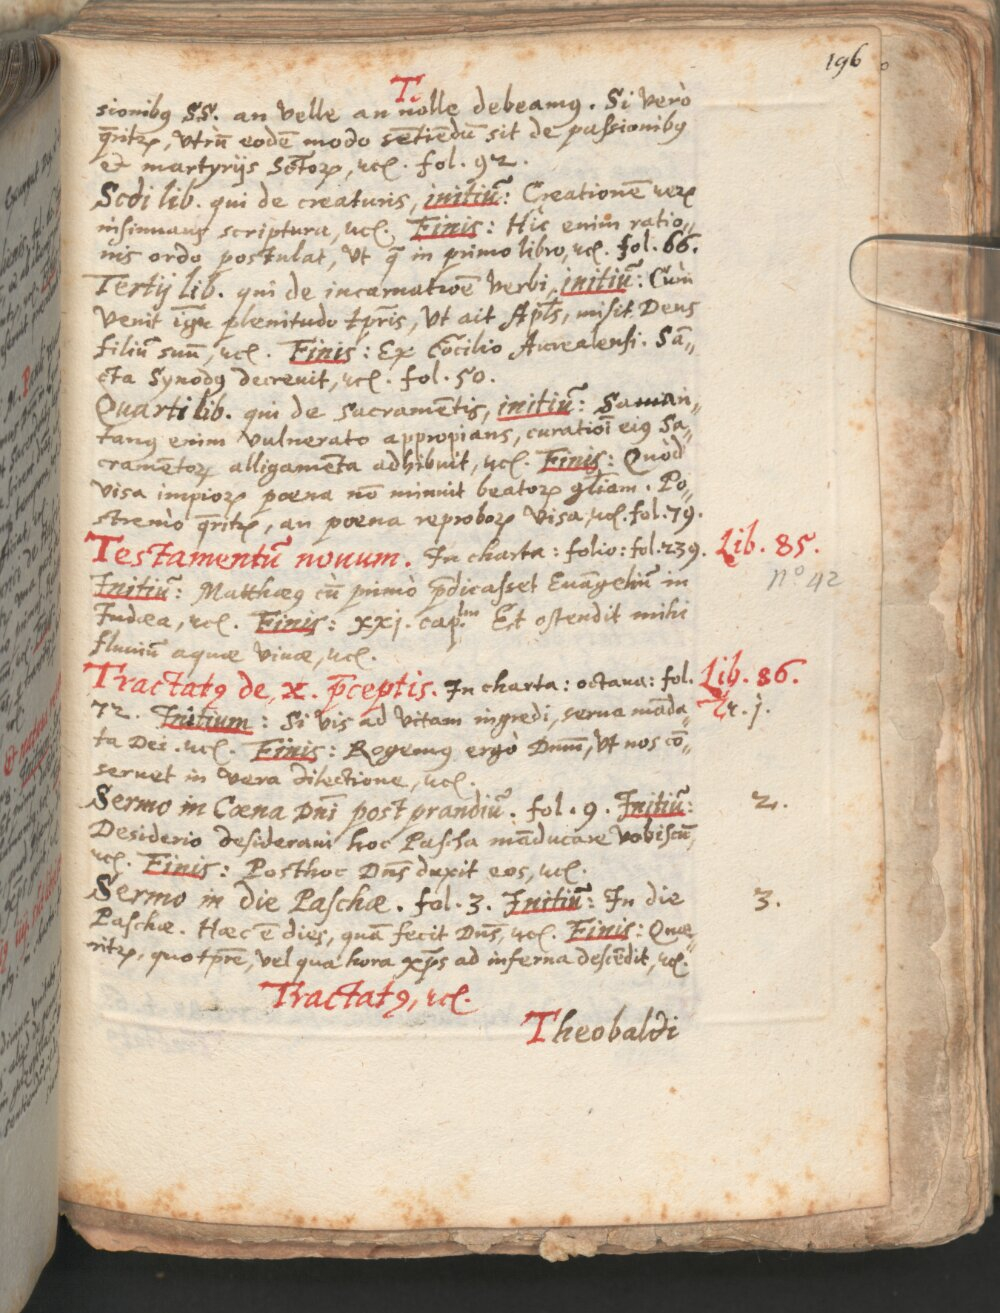 196
T.
sionibꝰ SS. an velle an nolle debeamꝰ. Si verò
q̄ritꝛ, vtrū eodē modo sētiēdū sit de passionibꝰ
et martyrijs Sctoꝝ, ꝛcl. fol. 92.
Scdi lib. qui de creaturis, initiū: Creationē reꝝ
insinuans scriptura, ꝛcl. Finis: Hic enim ratio„
nis ordo postulat, vt q̄ in primo libro, ꝛcl. fol. 66.
Tertij lib. qui de incarnatiōe verbi, initiū: Cùm
venit igr̄ plenitudo tp̄ris, vt ait Apl̄s, misit Deus
filiū suū, ꝛcl. Finis: Ex Cōcilio Aurealensi. Sā„
cta Synodꝰ decreuit, ꝛcl. fol. 50.
Quarti lib. qui de sacramētis, initiū: Samari„
tanꝰ enim vulnerato appropians, curatiōi eiꝰ Sa„
cramētoꝝ alligamēta adhibuit, ꝛcl. Finis: Quòd
visa impioꝝ poena nō minuit beatoꝝ gl̄iam. Po„
stremò q̄ritꝛ, an poena reproboꝝ visa, ꝛcl. fol. 79.
Testamentū nouum. In charta: folio: fol. 239. Lib. 85.
nº 42
Initiū: Matthæꝰ cū primò p̄dicasset Euāgeliū in
Iudæa, ꝛcl. Finis: xxj. caplm̄ Et ostendit mihi
fluuiū aquæ viuæ, ꝛcl.
Tractatꝰ de, x. p̄ceptis. In charta: octaua: fol. Lib. 86.
72. Initium: Si vis ad vitam ingredi, serua mādā„ Tr. j.
ta Dei. ꝛcl. Finis: Rogemꝰ ergò Dn̄m, vt nos cō„
seruet in vera dilectione, ꝛcl.
Sermo in Cœna Dn̄i post prandiū. fol. 9. Initiū: 2.
Desiderio desideraui hoc Pascha māducare vobiscū,
ꝛcl. Finis: Posthoc Dn̄s duxit eos, ꝛcl.
Sermo in die Paschæ. fol. 3. Initiū: In die 3.
Paschæ. Hæc ē dies, quā fecit Dn̄s, ꝛcl. Finis: Quæ„
ritꝛ, quo tp̄re, vel qua hora xp̄s ad inferna descēdit, ꝛcl.
Tractatꝰ, ꝛcl.
Theobaldi